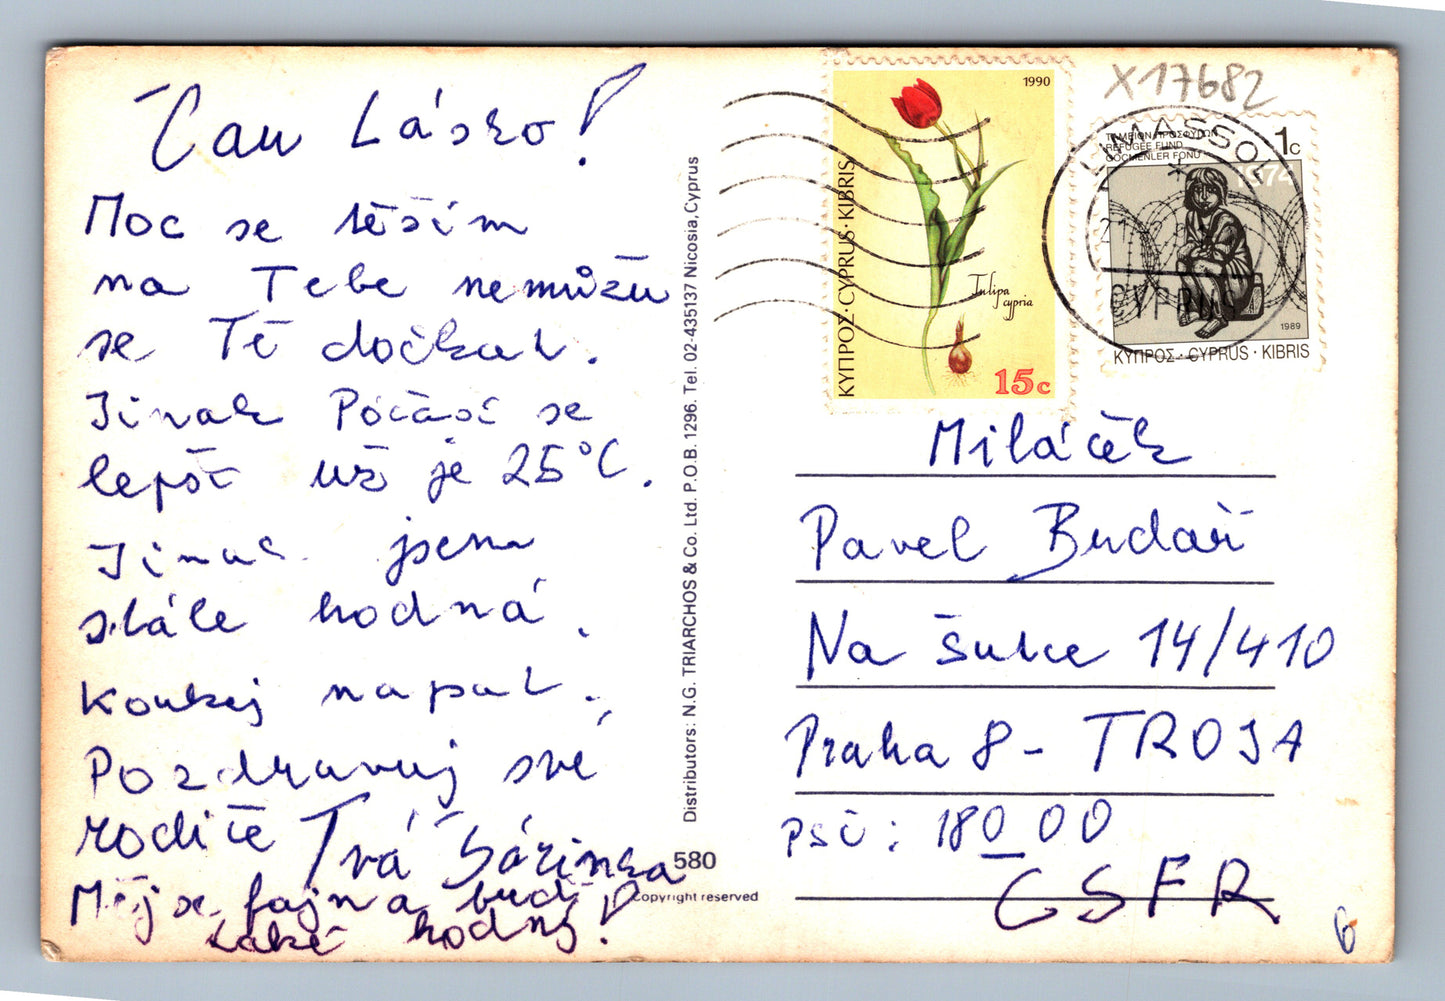 Čau Lásko!
Moc se těším
na Tebe nemůžu
se Tě dočkat.
Jinak Počasí se
lepší už je 25°C.
Jinak jsem
stále hodná.
Koukej napsat.
Pozdravuj své
rodiče Tvá Šárinka
Měj se fajn a buď
také hodný!
Distributors: N.G. TRIARCHOS & Co. Ltd. P.O.B. 1296. Tel. 02-435137 Nicosia, Cyprus
580
Copyright reserved
1990
ΚΥΠΡΟΣ·CYPRUS·KIBRIS
Tulipa
cypria
15c
X17682
ΤΑΜΕΙΟΝ ΠΡΟΣΦΥΓΩΝ
REFUGEE FUND
GÖÇMENLER FONU
1c
1974
1989
ΚΥΠΡΟΣ · CYPRUS · KIBRIS
LIMASSOL
CYPRUS
Miláček
Pavel Budař
Na Šutce 14/410
Praha 8 - TROJA
PSČ: 180 00
CSFR
6